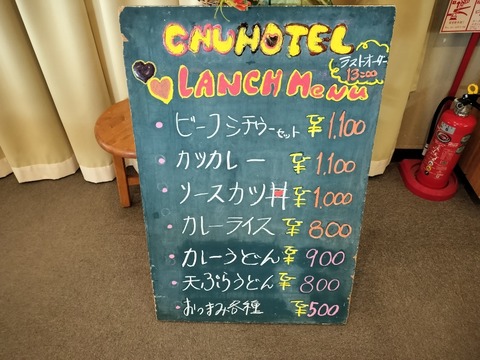 CHUHOTEL
ラストオーダー
13:00
LANCH MeNu
ビーフシチューセット ¥1,100
カツカレー ¥1,100
ソースカツ丼 ¥1,000
カレーライス ¥800
カレーうどん ¥900
天ぷらうどん ¥800
おつまみ各種 ¥500